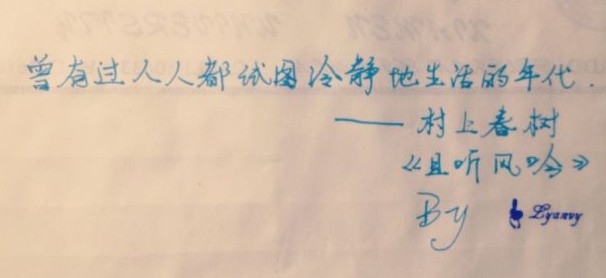 曾有过人人都试图冷静地生活的年代.
—— 村上春树
《且听风吟》
By Lyanvy